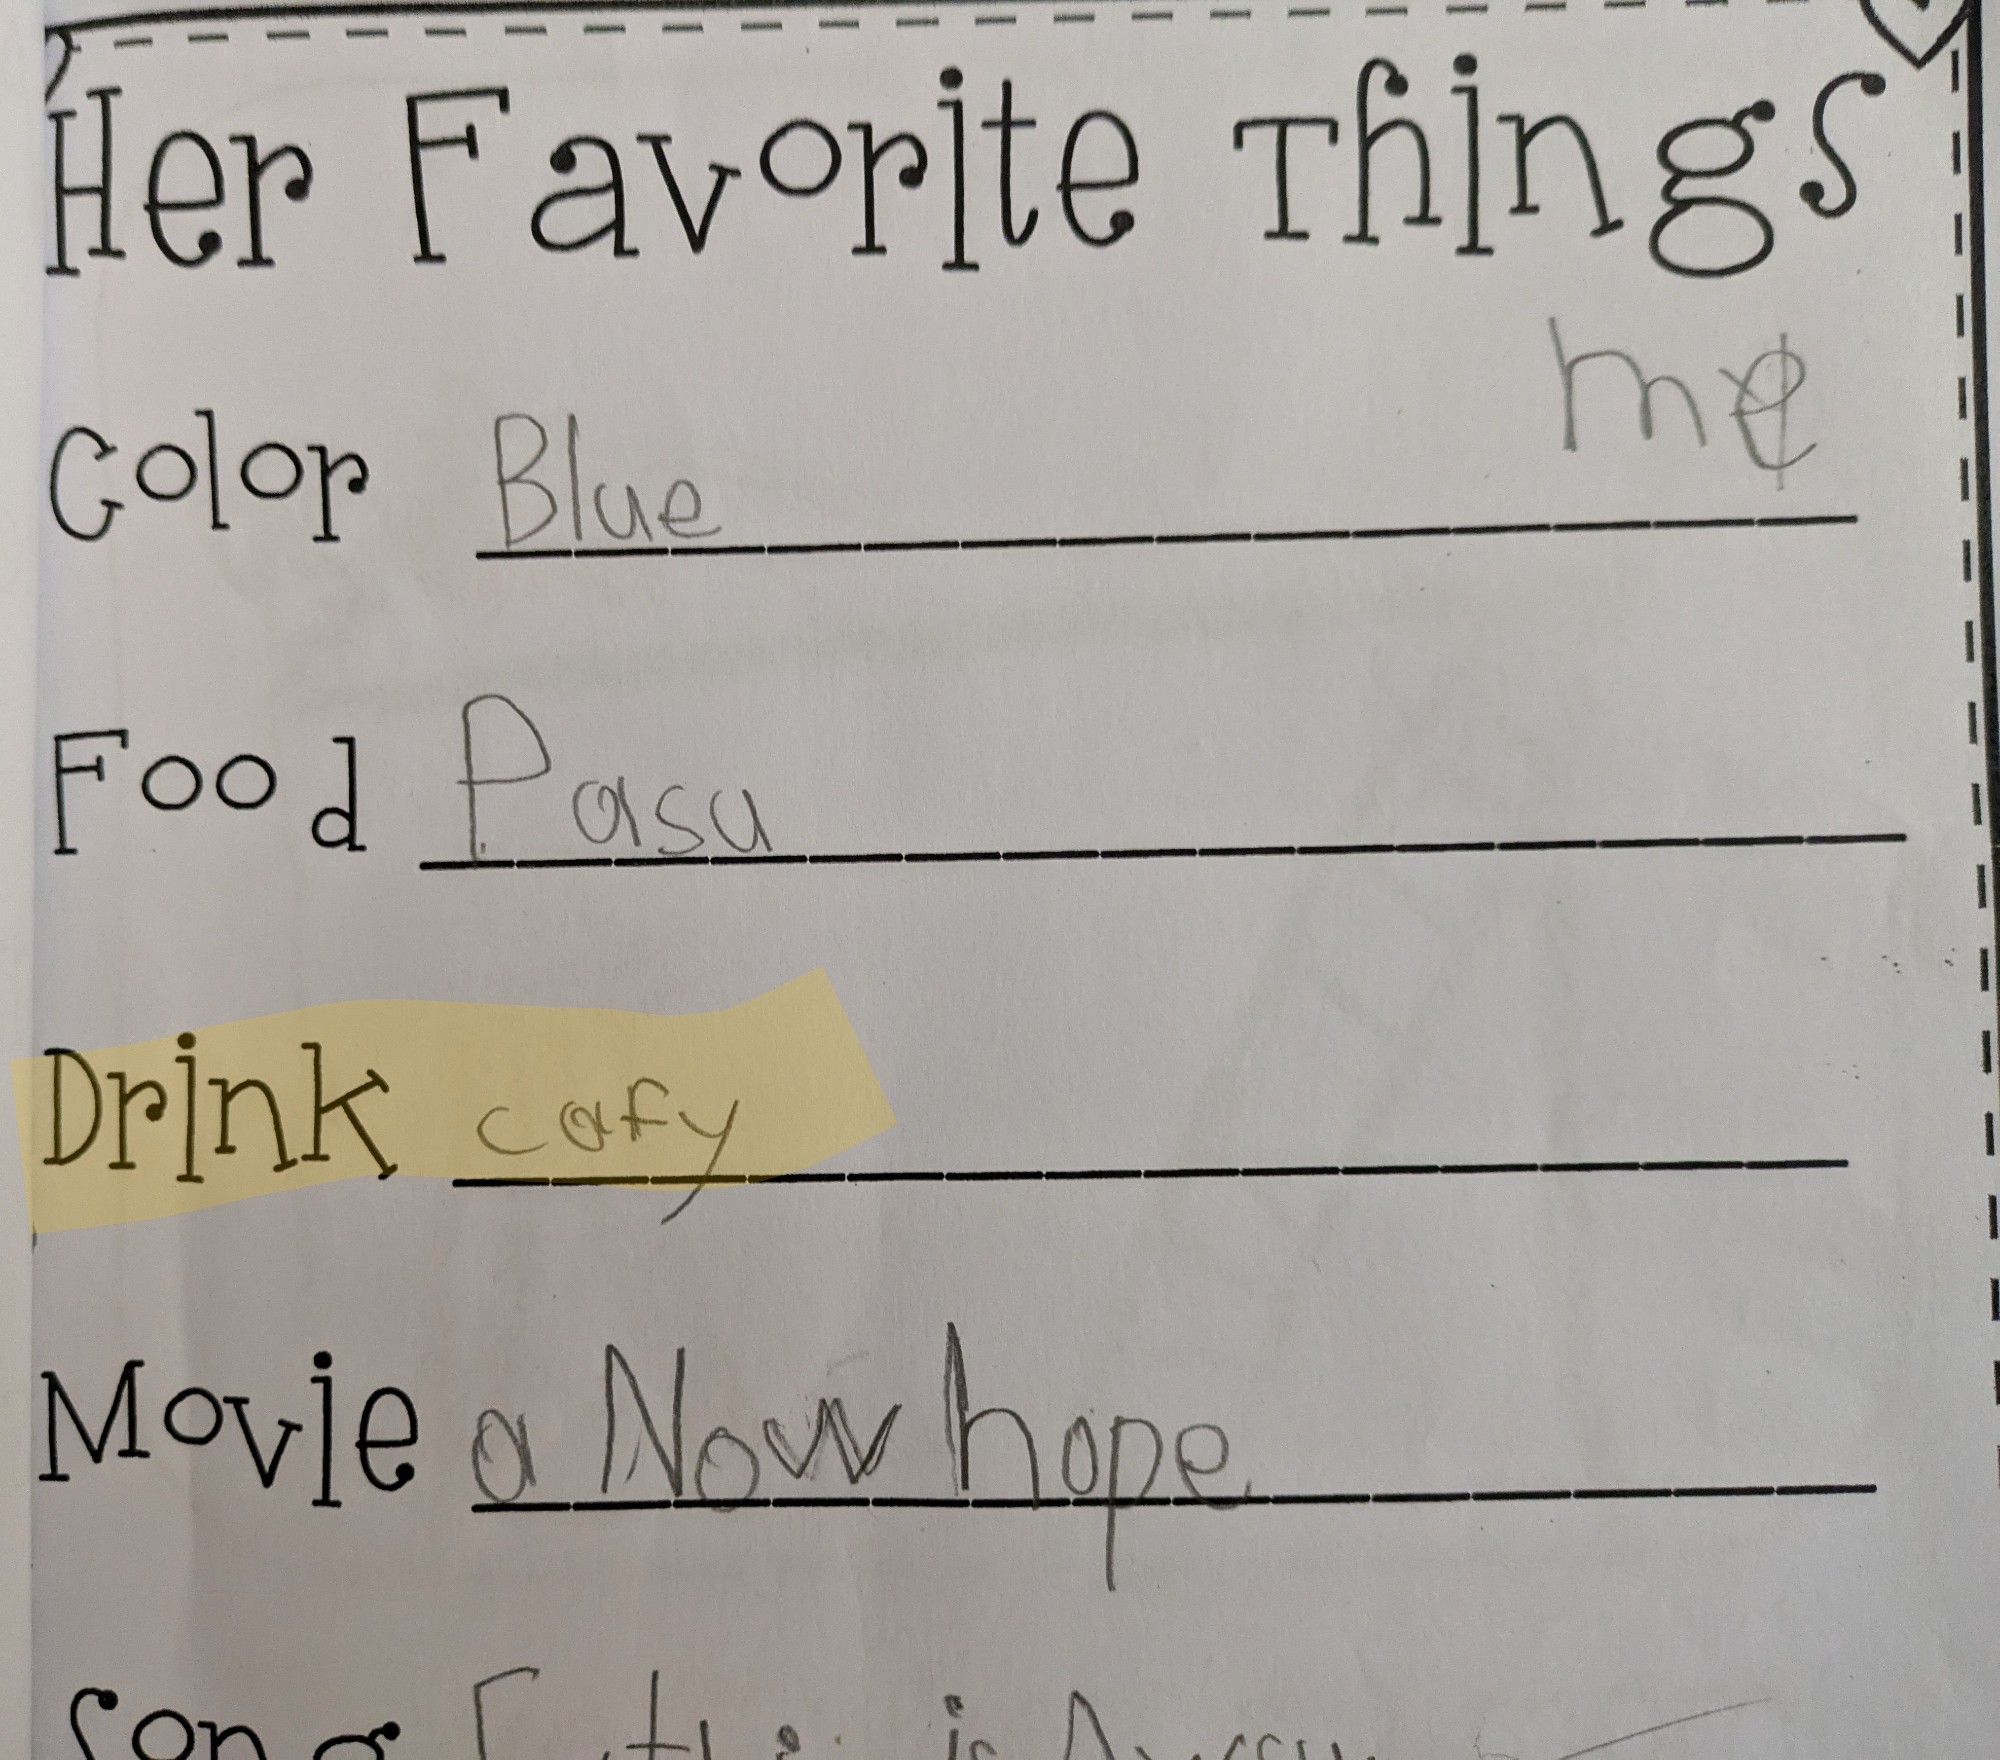 Her Favorite Things
me
Color Blue
Food Pasu
Drink cafy
Movie a Now hope
Song is